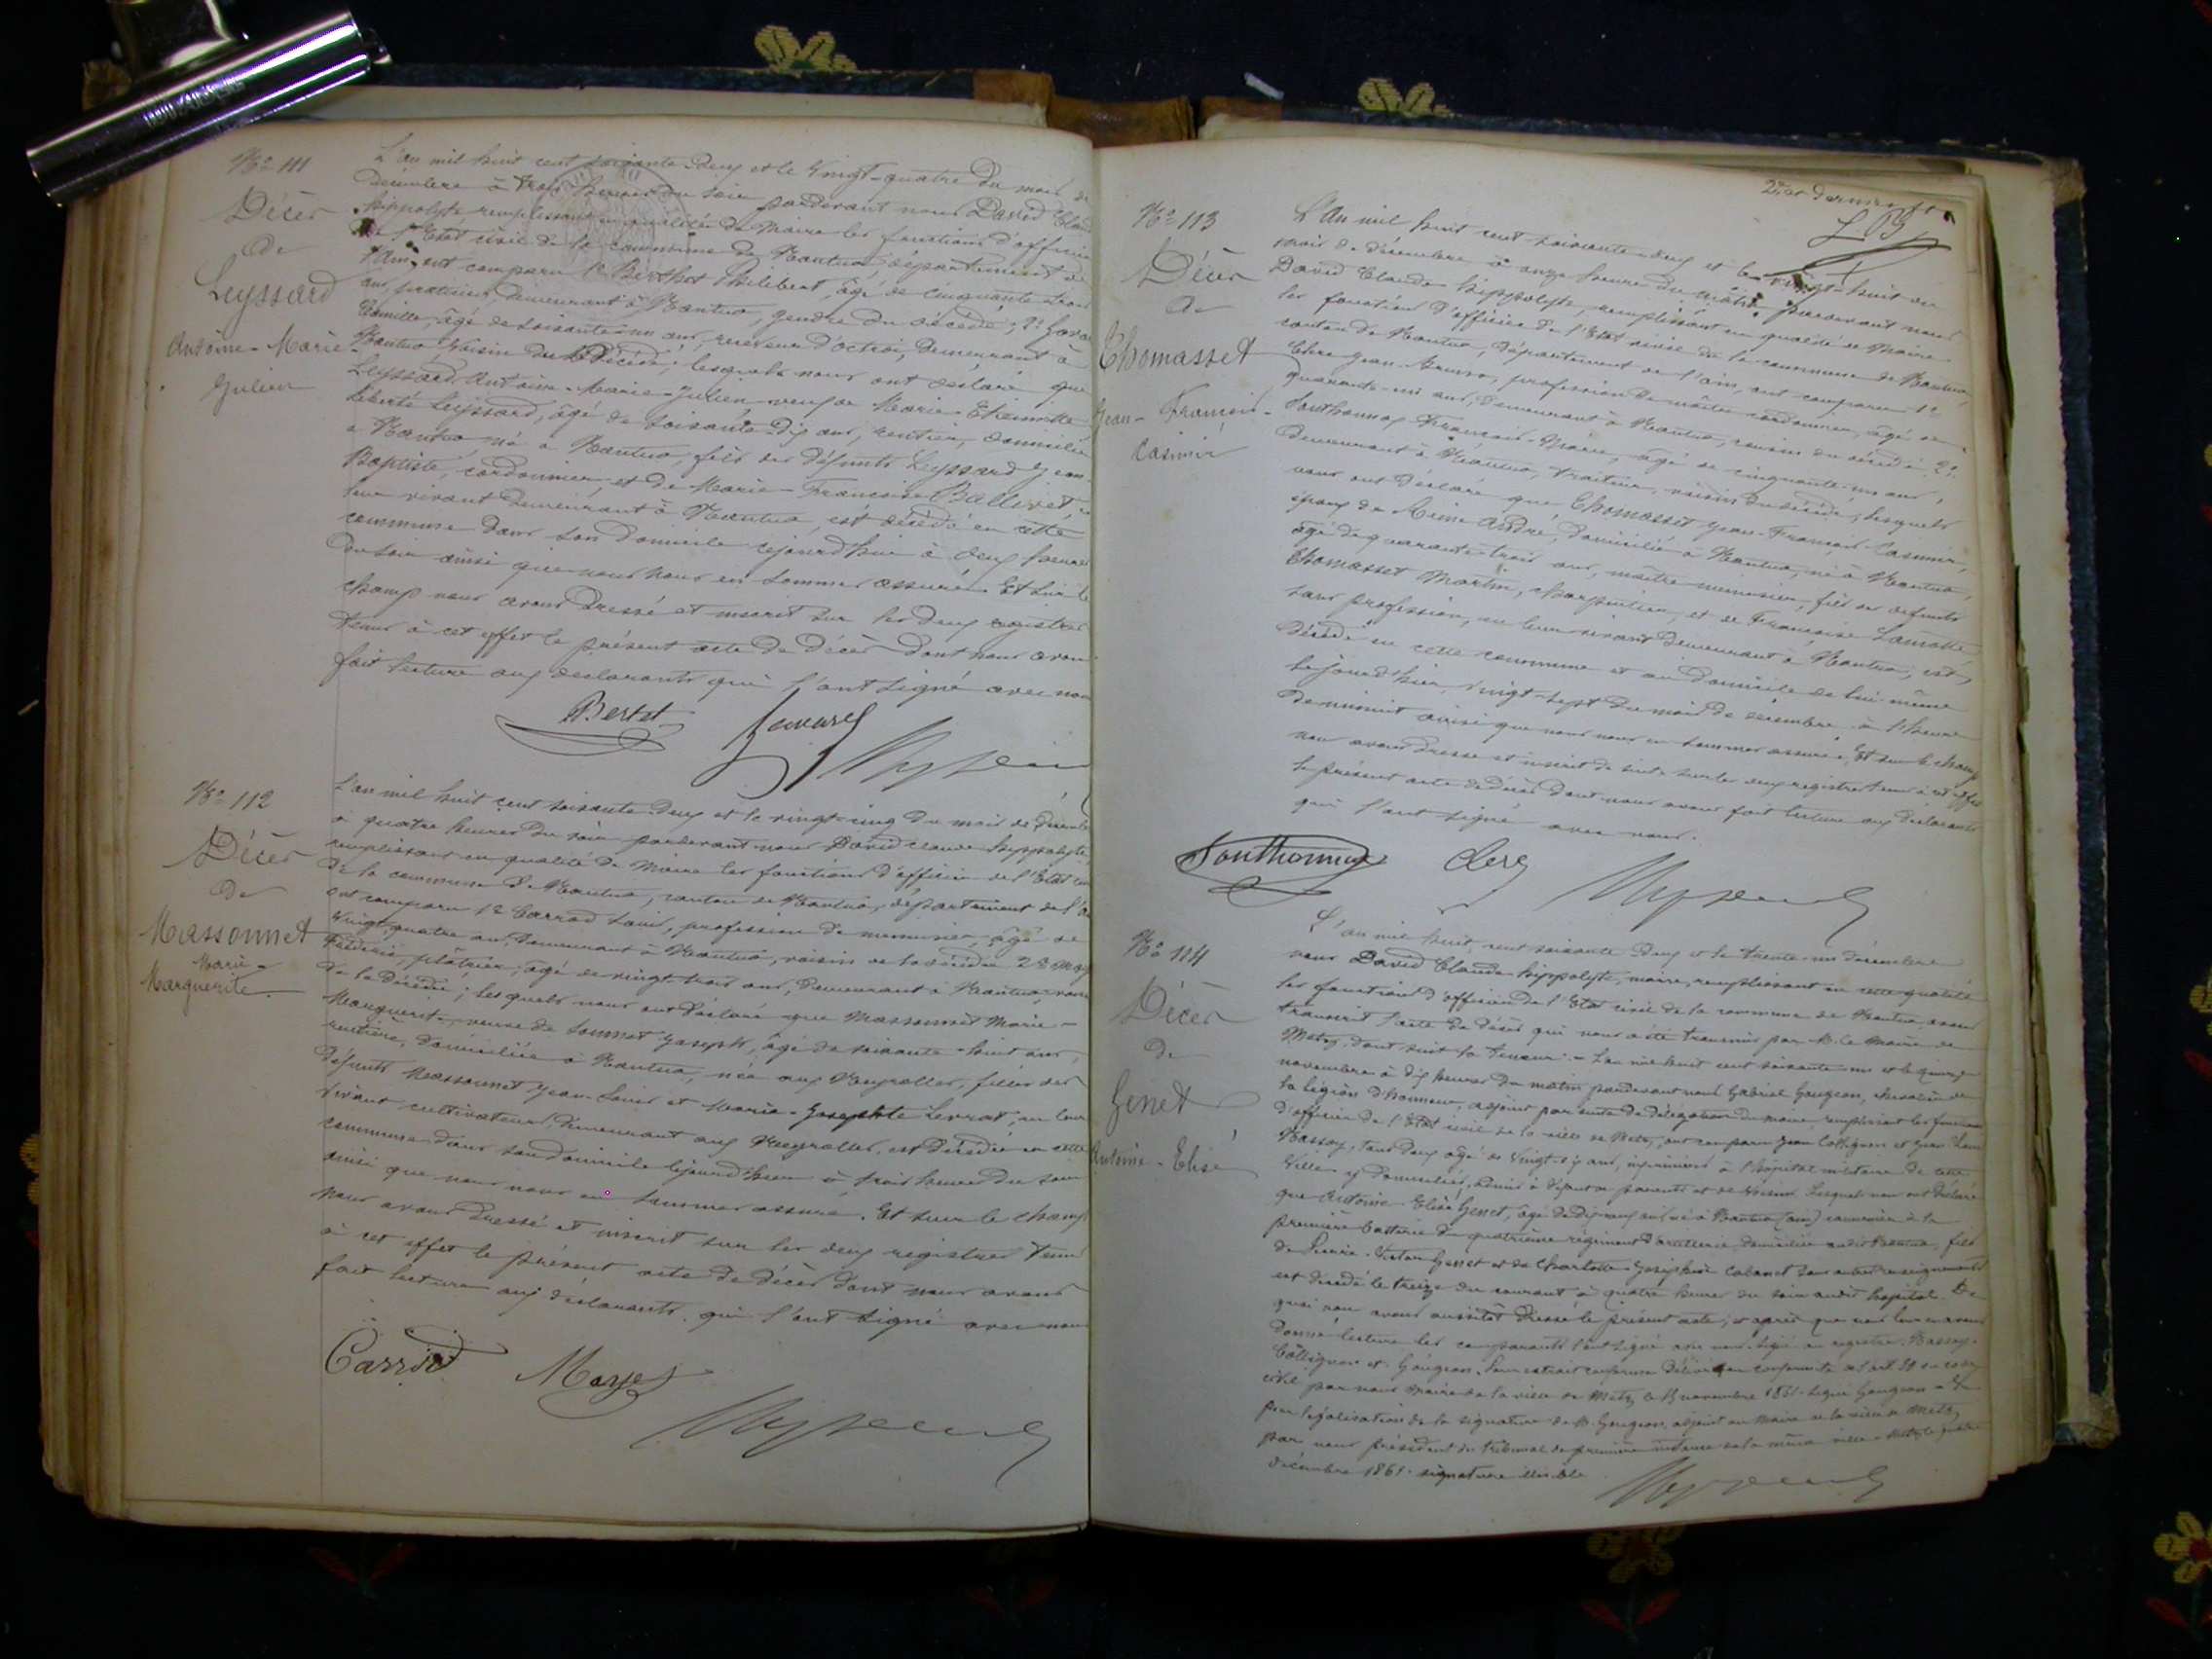 N° 111
Décès
de
Leyssard
Antoine-Marie-
Julien
L'an mil huit cent soixante-deux et le vingt-quatre du mois de
décembre à trois heures du soir pardevant nous David Claude
hippolyte remplissant en qualité de Maire les fonctions d'officier
de l'Etat civil de la commune de Nantua, département de
l'Ain, ont comparu 1° Berthet Philibert, âgé de cinquante-trois
ans, demeurant à Nantua, gendre du décédé; 2°
Camille, âgé de soixante-un ans, receveur d'octroi, demeurant à
Nantua, voisin du décédé; lesquels nous ont déclaré que
Leyssard Antoine-Marie-Julien veuf de Marie-Etiennette
Liberté Leyssard, âgé de soixante-dix ans, rentier, domicilié
à Nantua, né à Nantua, fils des défunts Leyssard Jean-
Baptiste, cordonnier, et de Marie-Françoise Balleret, en
leur vivant demeurant à Nantua, est décédé en cette
commune dans son domicile cejourd'hui à deux heures
du soir ainsi que nous nous en sommes assuré. Et sur le
champ nous avons dressé et inscrit sur les deux registres
tenus à cet effet le présent acte de décès dont nous avons
fait lecture aux déclarants qui l'ont signé avec nous
Bertet
N° 112
Décès
de
Massonnet
Marie-
Marguerite
L'an mil huit cent soixante-deux et le vingt-cinq du mois de décembre
à quatre heures du soir pardevant nous David Claude hippolyte
remplissant en qualité de Maire les fonctions d'officier de l'Etat civil
de la commune de Nantua, canton de Nantua, département de l'Ain
ont comparu 1° Carrad Louis, profession de menuisier, âgé de
vingt-quatre ans, demeurant à Nantua, voisin de la décédée 2°
Frédéric, plâtrier, âgé de vingt-trois ans, demeurant à Nantua, voisin
de la décédée; lesquels nous ont déclaré que Massonnet Marie-
Marguerite, veuve de Joseph, âgée de soixante-huit ans,
rentière, domiciliée à Nantua, née aux Neyrolles, fille des
défunts Massonnet Jean-Louis et Marie-Josephte Levrat, en leur
vivant cultivateurs, demeurant aux Neyrolles, est décédée en cette
commune dans son domicile cejourd'hui à trois heures du soir
ainsi que nous nous en sommes assuré. Et sur le champ
nous avons dressé et inscrit sur les deux registres tenus
à cet effet le présent acte de décès dont nous avons
fait lecture aux déclarants qui l'ont signé avec nous
2me et dernier
N° 113
Décès
de
Thomasset
Jean-François-
Casimir
L'an mil huit cent soixante-deux et le vingt-huit du
mois de décembre à onze heures du matin pardevant nous
David Claude hippolyte, remplissant en qualité de Maire
les fonctions d'officier de l'Etat civil de la commune de Nantua,
canton de Nantua, département de l'Ain, ont comparu 1°
Clerc Jean profession de maître cordonnier, âgé de
quarante-un ans, demeurant à Nantua, cousin du décédé; 2°
Sonthonnax François-Marie, âgé de cinquante-un ans,
demeurant à Nantua, traiteur, voisin du décédé; lesquels
nous ont déclaré que Thomasset Jean-François-Casimir,
époux de André, domicilié à Nantua, né à Nantua,
âgé de quarante-trois ans, maître menuisier, fils des défunts
Thomasset Martin, charpentier, et de Françoise Lamotte
sans profession, en leur vivant demeurant à Nantua, est
décédé en cette commune et au domicile de lui-même
le jour d'hier, vingt-sept du mois de décembre, à l'heure
de minuit ainsi que nous nous en sommes assuré. Et sur le champ
nous avons dressé et inscrit de suite sur les deux registres tenus à cet effet
le présent acte de décès dont nous avons fait lecture aux déclarants
qui l'ont signé avec nous.
Sonthonnax Clerc
N° 114
Décès
de
Genet
Antoine-Elisé
L'an mil huit cent soixante-deux et le trente-un décembre
nous David Claude hippolyte, maire, remplissant en cette qualité
les fonctions d'officier de l'Etat civil de la commune de Nantua avons
transcrit l'acte de décès qui nous a été transmis par M. le Maire de
Metz, dont suit la teneur: = L'an mil huit cent soixante-un et le quinze
novembre à dix heures du matin pardevant nous Gabriel Gougeon, chevalier de
la légion d'honneur, adjoint par suite de délégation du maire, remplissant les fonctions
d'officier de l'Etat civil de la ville de Metz, ont comparu Jean Collignon et Jean
Bassoy, tous deux âgés de vingt-six ans, infirmiers à l'hôpital militaire de cette
ville y domiciliés, admis à défaut de parents et de voisins. Lesquels nous ont déclaré
que Antoine-Elisé Genet, âgé de dix-neuf ans, né à Nantua (ain) canonnier à la
première batterie du quatrième régiment d'artillerie, domicilié audit Nantua, fils
de Pierre-Victor Genet et de Charlotte-Joséphine sans autres renseignements
est décédé le treize du courant à quatre heures du soir audit hôpital. De
quoi nous avons aussitôt dressé le présent acte, et après que nous leur en avons
donné lecture les comparants l'ont signé avec nous. Signé au registre: Bassoy.
Collignon et Gougeon. Pour extrait conforme délivré en conformité de l'art. 80 du code
civil par nous maire de la ville de Metz le 15 novembre 1861. Signé Gougeon
pour légalisation de la signature de M. Gougeon, adjoint au Maire de la ville de Metz
par nous président du tribunal de première instance de la même ville. Metz le
décembre 1861. signature illisible